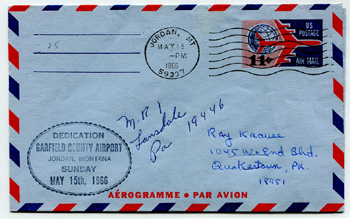 JORDAN, MT
MAY 15
-PM
1966
59337
US
POSTAGE
11¢
AIR MAIL
25
M.R. 1
Lansdale
Pa 19446
Ray
1045 W. End Blvd.
Quakertown, Pa.
18951
DEDICATION
GARFIELD COUNTY AIRPORT
JORDAN, MONTANA
SUNDAY
MAY 15th, 1966
AÉROGRAMME • PAR AVION